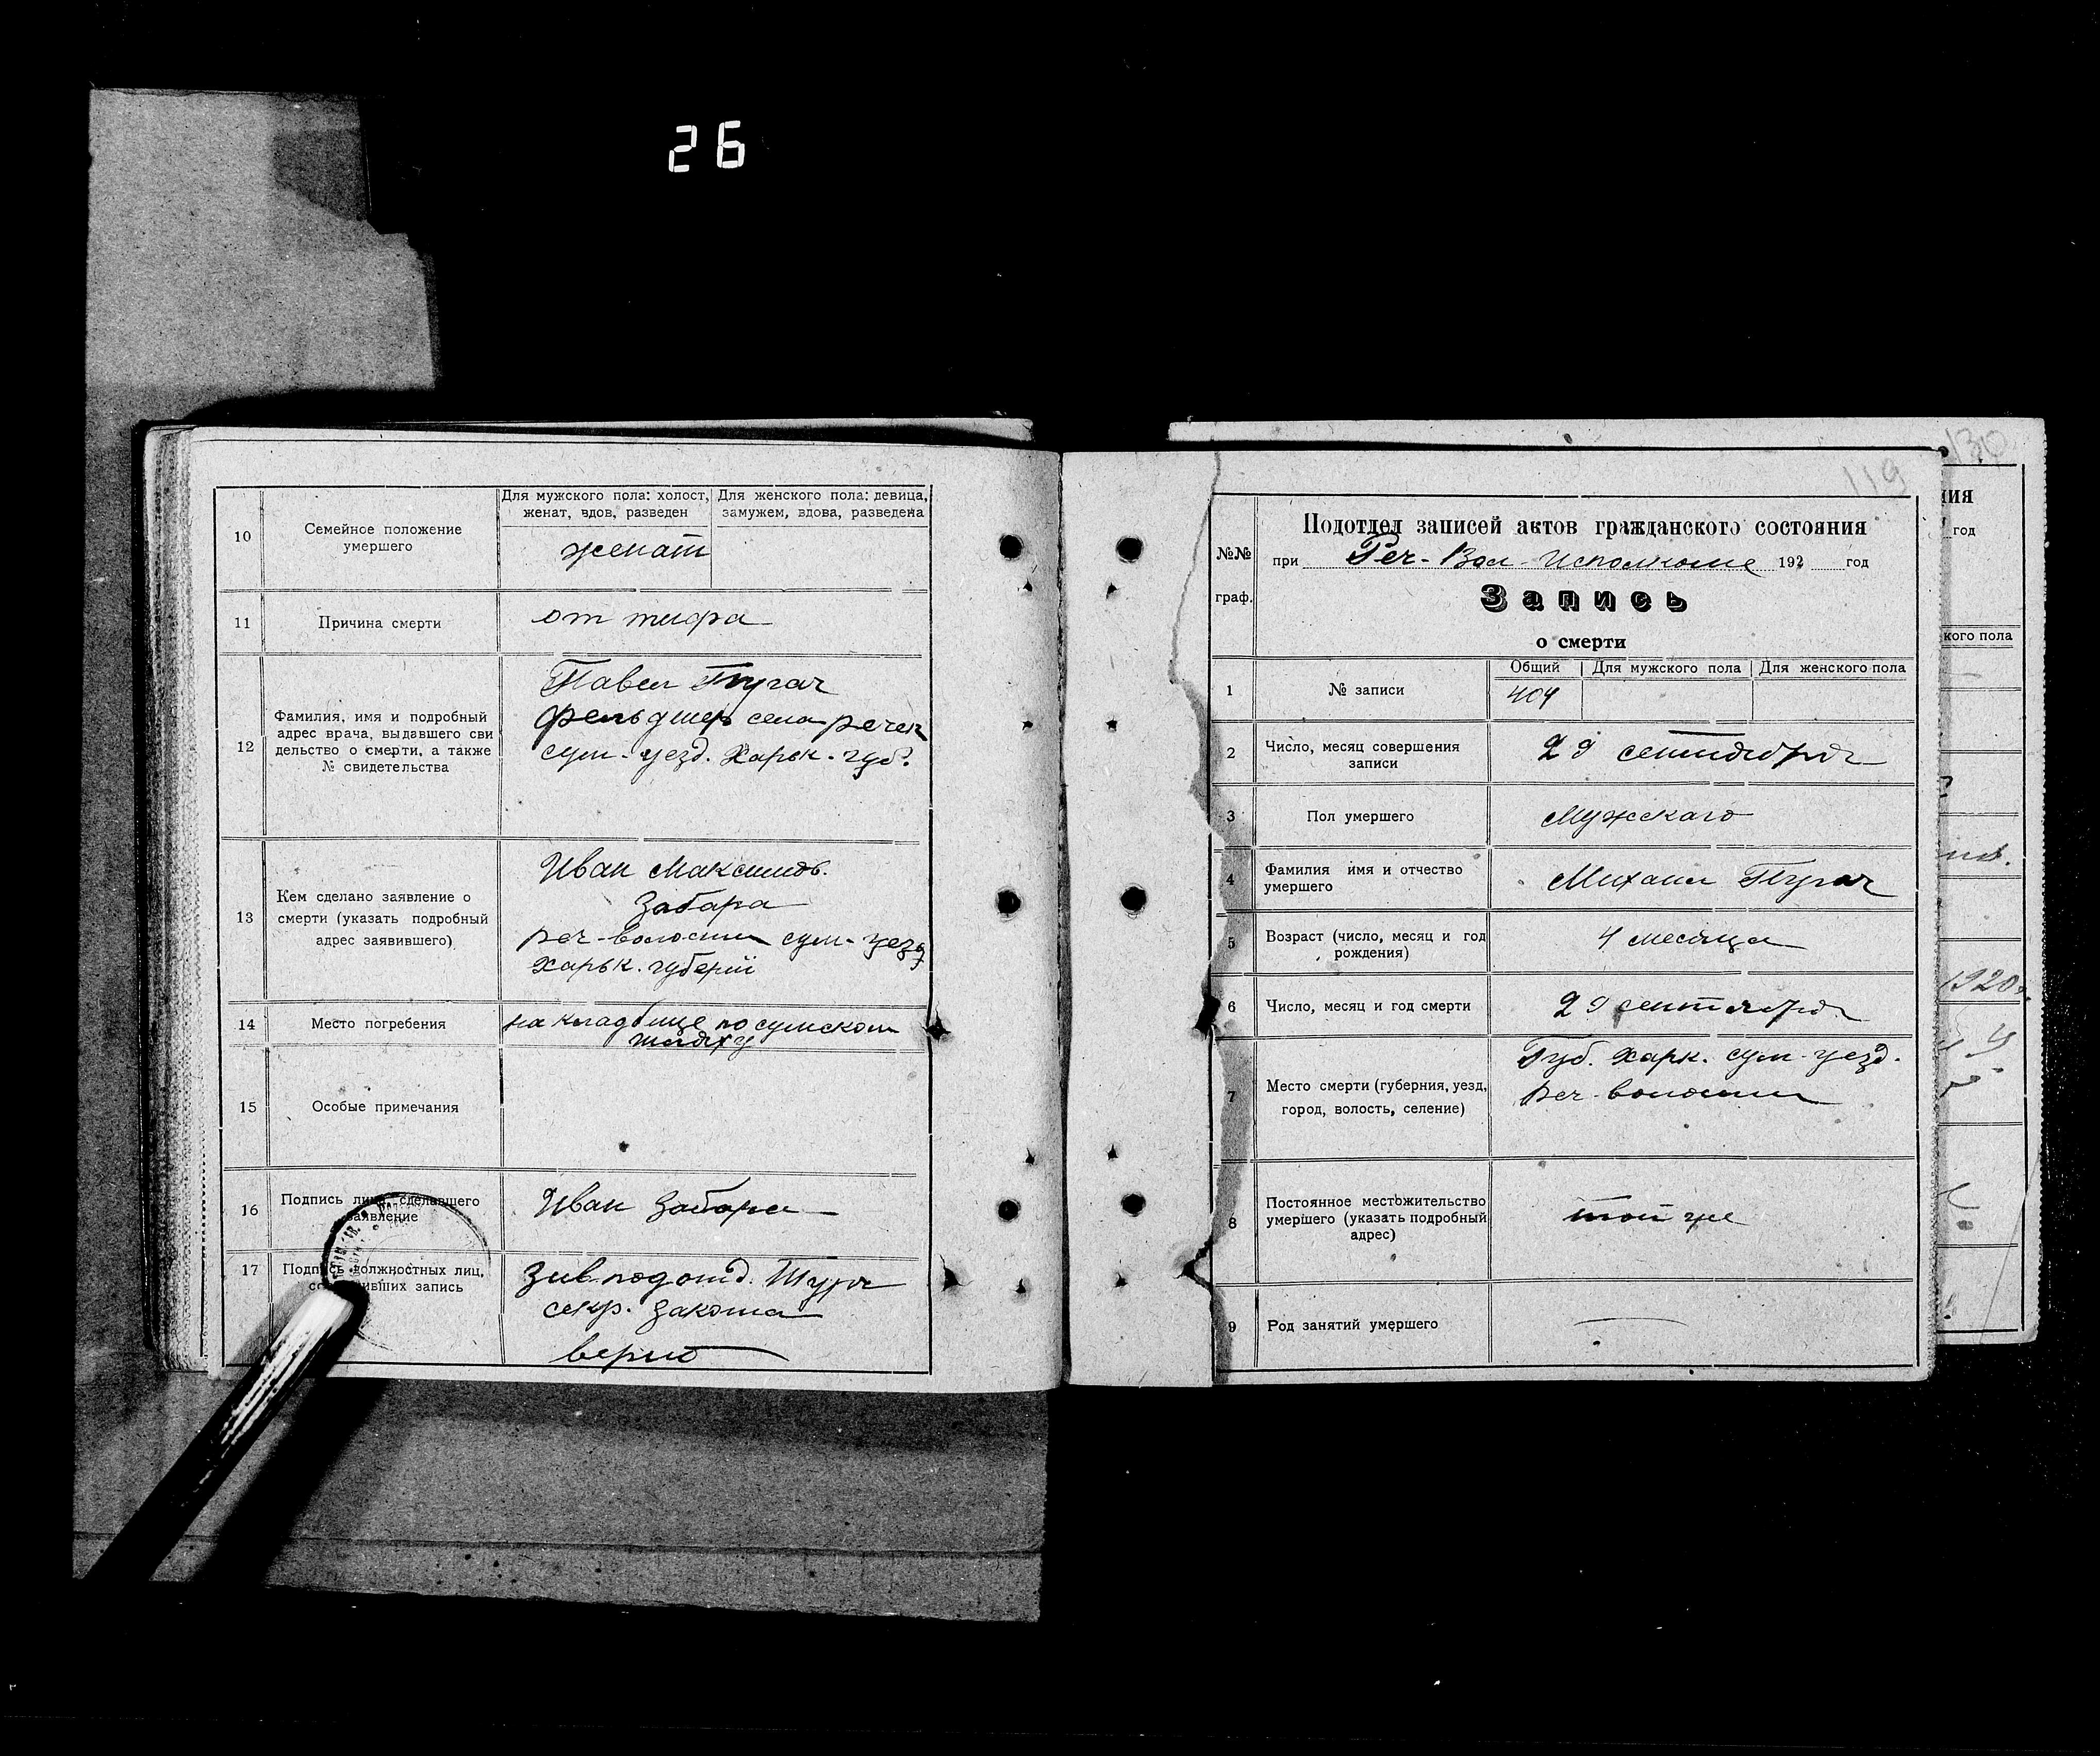 26
10
Семейное положение
умершего
Для мужского пола: холост,
женат, вдов, разведен
Для женского пола: девица,
замужем, вдова, разведена
женат
11
Причина смерти
от тифа
12
Фамилия, имя и подробный
адрес врача, выдавшего сви
детельство о смерти, а также
№ свидетельства
Павел Пугач
фельдшер села речек
сум-уезд. Харьк. губ.
13
Кем сделано заявление о
смерти (указать подробный
адрес заявившего)
Иван Максимов.
Забара
реч-волости сум-уезд
Харьк. губерии
14
Место погребения
на кладбище по сумском
шляху
15
Особые примечания
16
Подпись лица, сделавшего
заявление
Иван Забара
17
Подпись должностных лиц,
вивших запись
Зав. подотд.
секр.
верно
119
130
№№
граф.
Подотдел записей актов гражданского состояния
при Реч-Вол-Исполкоме 192 год
Запись
о смерти
1
№ записи
Общий
Для мужского пола
Для женского пола
404
2
Число, месяц совершения
записи
29 сентября
3
Пол умершего
Мужскаго
4
Фамилия имя и отчество
умершего
Михаил Пугач
5
Возраст (число, месяц и год
рождения)
4 месяца
6
Число, месяц и год смерти
29 сентября
7
Место смерти (губерния, уезд,
город, волость, селение)
Губ. харк. сум-уезд.
реч-волости
8
Постоянное местожительство
умершего (указать подробный
адрес)
той же
9
Род занятий умершего
ия
год
кого пола
1920